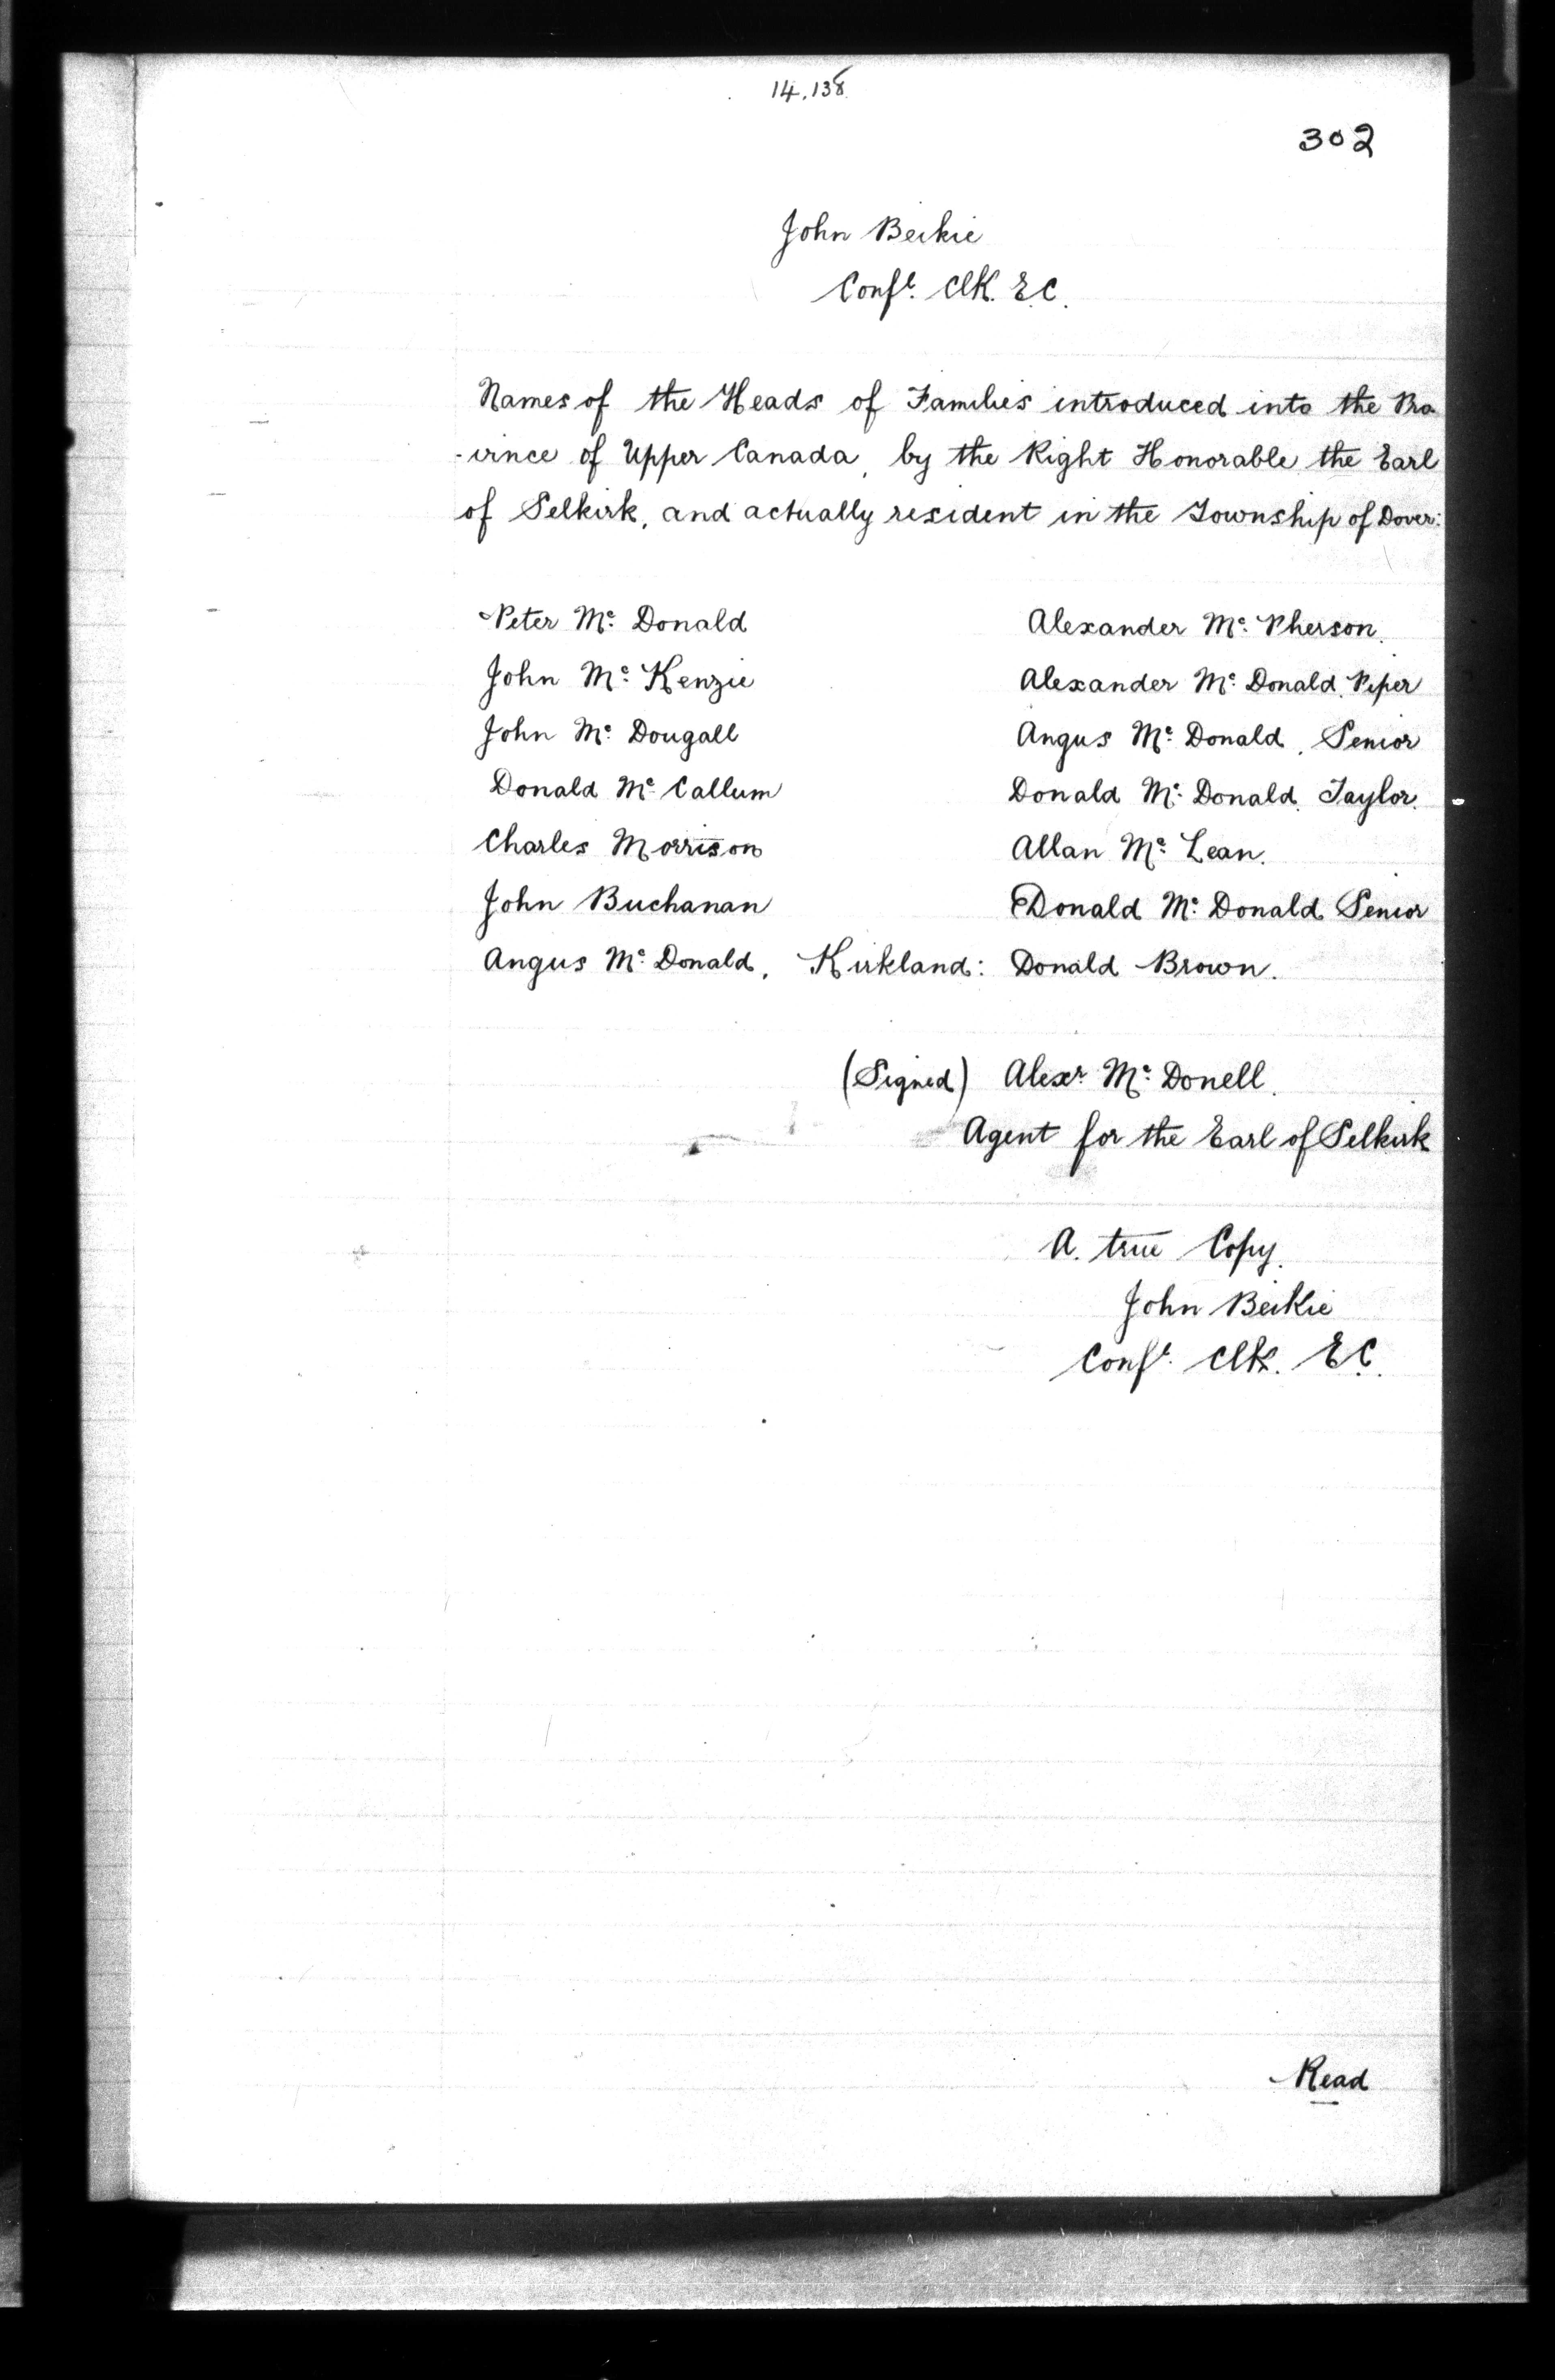 14.138
302
John Beikie
Confl. Clk. E.C.
Names of the Heads of Families introduced into the Pro
-vince of Upper Canada, by the Right Honorable the Earl
of Selkirk, and actually resident in the Township of Dover:
Peter Mc. Donald Alexander Mc. Pherson.
John Mc. Kenzie Alexander Mc. Donald, Piper
John Mc. Dougall Angus Mc. Donald, Senior
Donald Mc. Callum Donald Mc. Donald, Taylor.
Charles Morrison Allan Mc. Lean.
John Buchanan Donald Mc. Donald Senior
Angus Mc. Donald, Kirkland: Donald Brown.
(Signed) Alexr. Mc. Donell.
Agent for the Earl of Selkirk
A. true Copy.
John Beikie
Confl. Clk. E.C.
Read